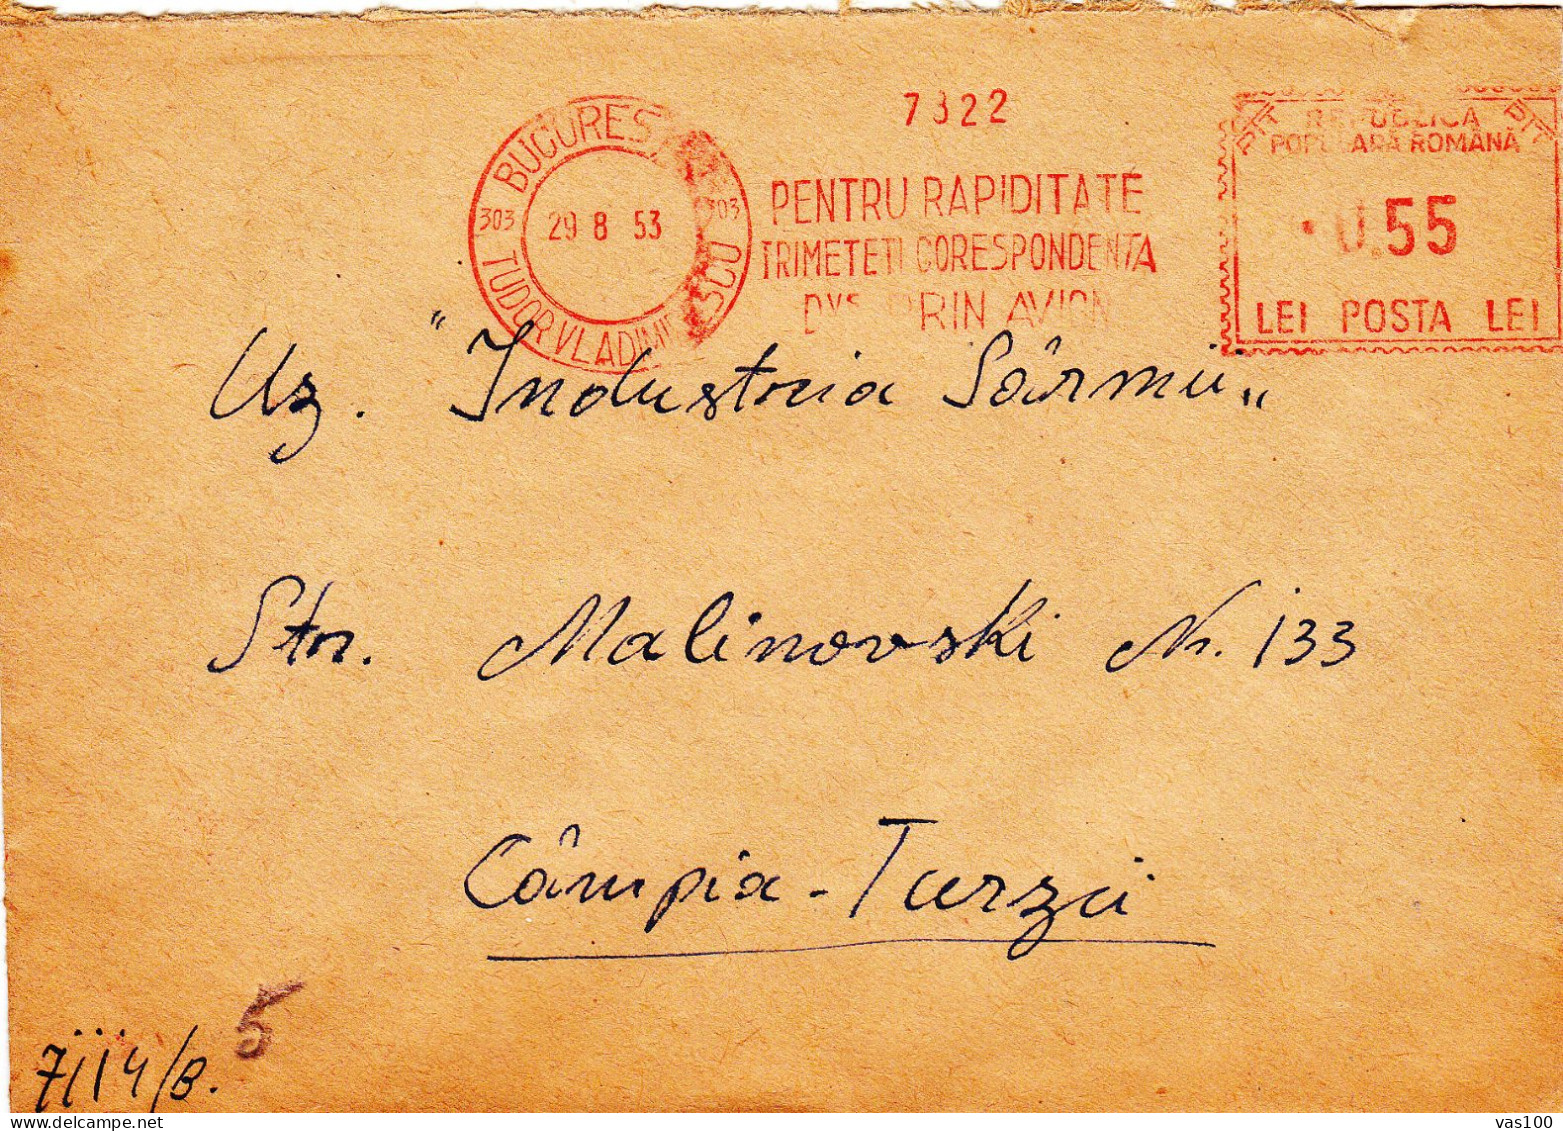 7322
BUCUREȘ
303 29 8 53 303
TUDOR VLADIMIRESCU
PENTRU RAPIDITATE
TRIMETEȚI CORESPONDENȚA
DVS. PRIN AVION
PTT REPUBLICA PTT
POPULARĂ ROMÂNĂ
0.55
LEI POSTA LEI
Uz. "Industria Sârmii„
Str. Malinovski Nr. 133
Câmpia-Turzii
5
7114/B.
delcampe.net
vas100